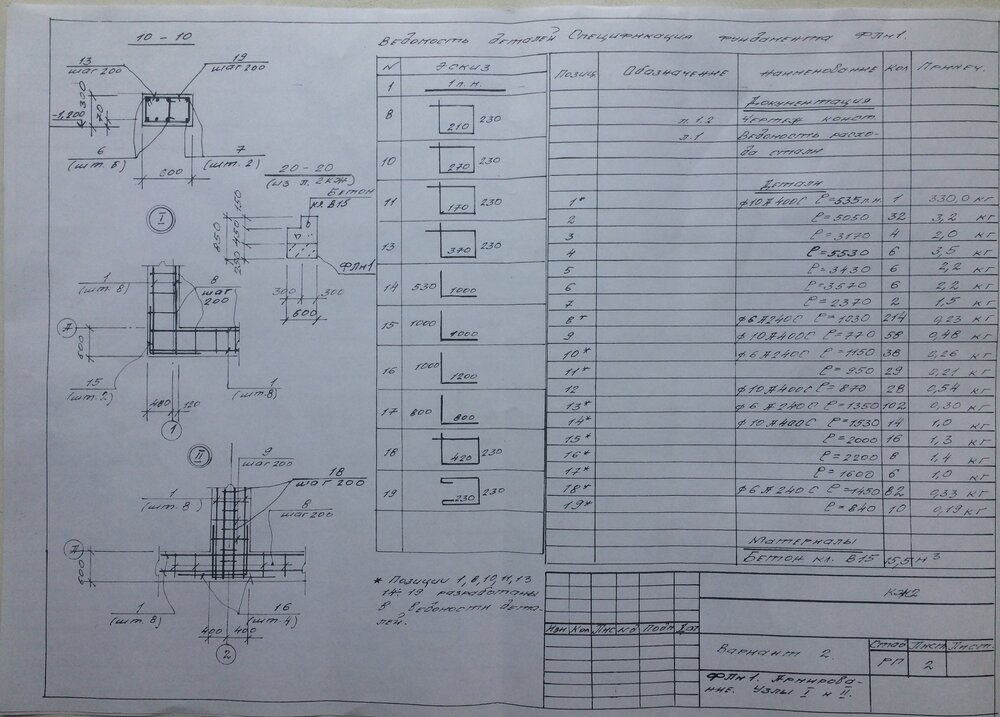 10 - 10
13
шаг 200
19
шаг 200
300
70
-1,200
6
(шт. 5)
7
(шт. 2)
600
20 - 20
(из л. 2 КЖ)
Бетон
кл. В15
150
450
250
850
ФЛн1
300
300
600
I
1
(шт. 8)
8
шаг
200
А
600
15
(шт. 2)
1
(шт. 8)
480
120
1
II
9
шаг 200
18
шаг 200
1
(шт. 8)
8
шаг 200
А
600
1
(шт. 8)
16
(шт. 4)
400
400
2
Ведомость деталей
N Эскиз
1 1 п.м.
8 210 230
10 270 230
11 170 230
13 370 230
14 530 1000
15 1000 1000
16 1000 1200
17 800 800
18 420 230
19 230 230
* Позиции 1, 8, 10, 11, 13
14÷19 разработаны
в ведомости дета-
лей.
Спецификация фундамента ФЛн1.
Позиц Обозначение Наименование Кол Примеч.
Документация
л. 1.2 Чертеж конст.
л. 1 Ведомость расхо-
да стали
Детали
1* ф10А400С ℓ=535 п.м. 1 330,0 кг
2 ℓ=5050 32 3,2 кг
3 ℓ=3170 4 2,0 кг
4 ℓ=5530 6 3,5 кг
5 ℓ=3430 6 2,2 кг
6 ℓ=3570 6 2,2 кг
7 ℓ=2370 2 1,5 кг
8* ф6А240С ℓ=1030 214 0,23 кг
9 ф10А400С ℓ=770 58 0,48 кг
10* ф6А240С ℓ=1150 38 0,26 кг
11* ℓ=950 29 0,21 кг
12 ф10А400С ℓ=870 28 0,54 кг
13* ф6А240С ℓ=1350 102 0,30 кг
14* ф10А400С ℓ=1530 14 1,0 кг
15* ℓ=2000 16 1,3 кг
16* ℓ=2200 8 1,4 кг
17* ℓ=1600 6 1,0 кг
18* ф6А240С ℓ=1450 82 0,33 кг
19* ℓ=840 10 0,19 кг
Материалы
Бетон кл. В15 15,5 м³
КЖ2
Изм Кол Лис №д Подп Дат
Вариант 2.
Стад Лист Лист.
РП 2
ФЛн1. Армирова-
ние. Узлы I и II.